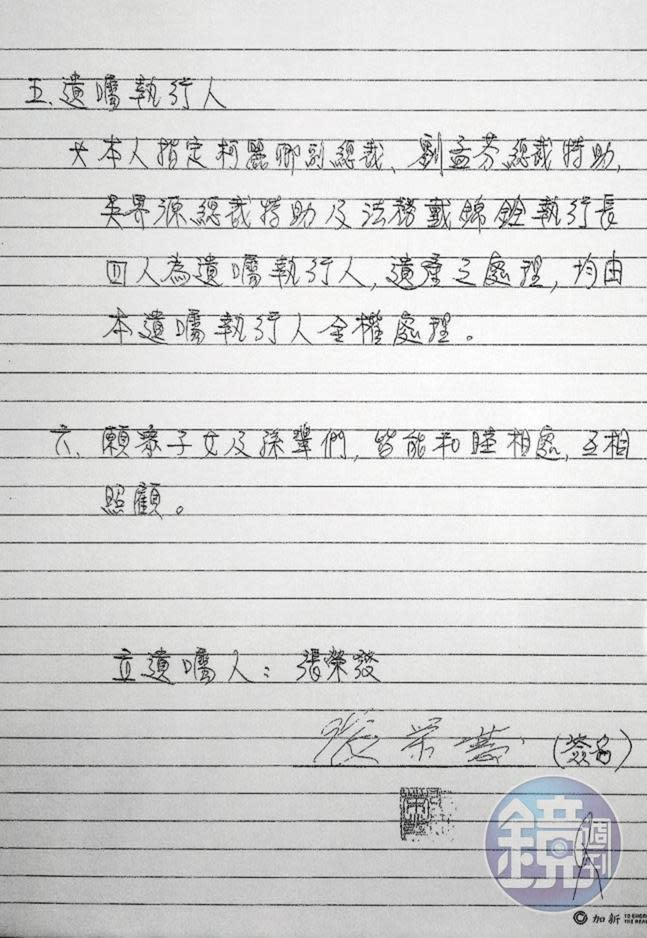 五、遺囑執行人
本人指定柯麗卿副總裁、劉孟芬總裁特助、
吳界源總裁特助及法務戴錦銓執行長
四人為遺囑執行人,遺產之處理,均由
本遺囑執行人全權處理。
六、願眾子女及孫輩們,皆能和睦相處,互相
照顧。
立遺囑人:張榮發
張榮發 (簽名)
鏡週刊
加新